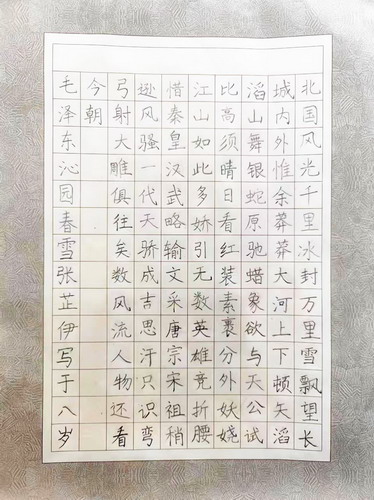 北国风光千里冰封万里雪飘望长
城内外惟余莽莽大河上下顿失滔
滔山舞银蛇原驰蜡象欲与天公试
比高须晴日看红装素裹分外妖娆
江山如此多娇引无数英雄竞折腰
惜秦皇汉武略输文采唐宗宋祖稍
逊风骚一代天骄成吉思汗只识弯
弓射大雕俱往矣数风流人物还看
今朝
毛泽东沁园春雪张芷伊写于八岁